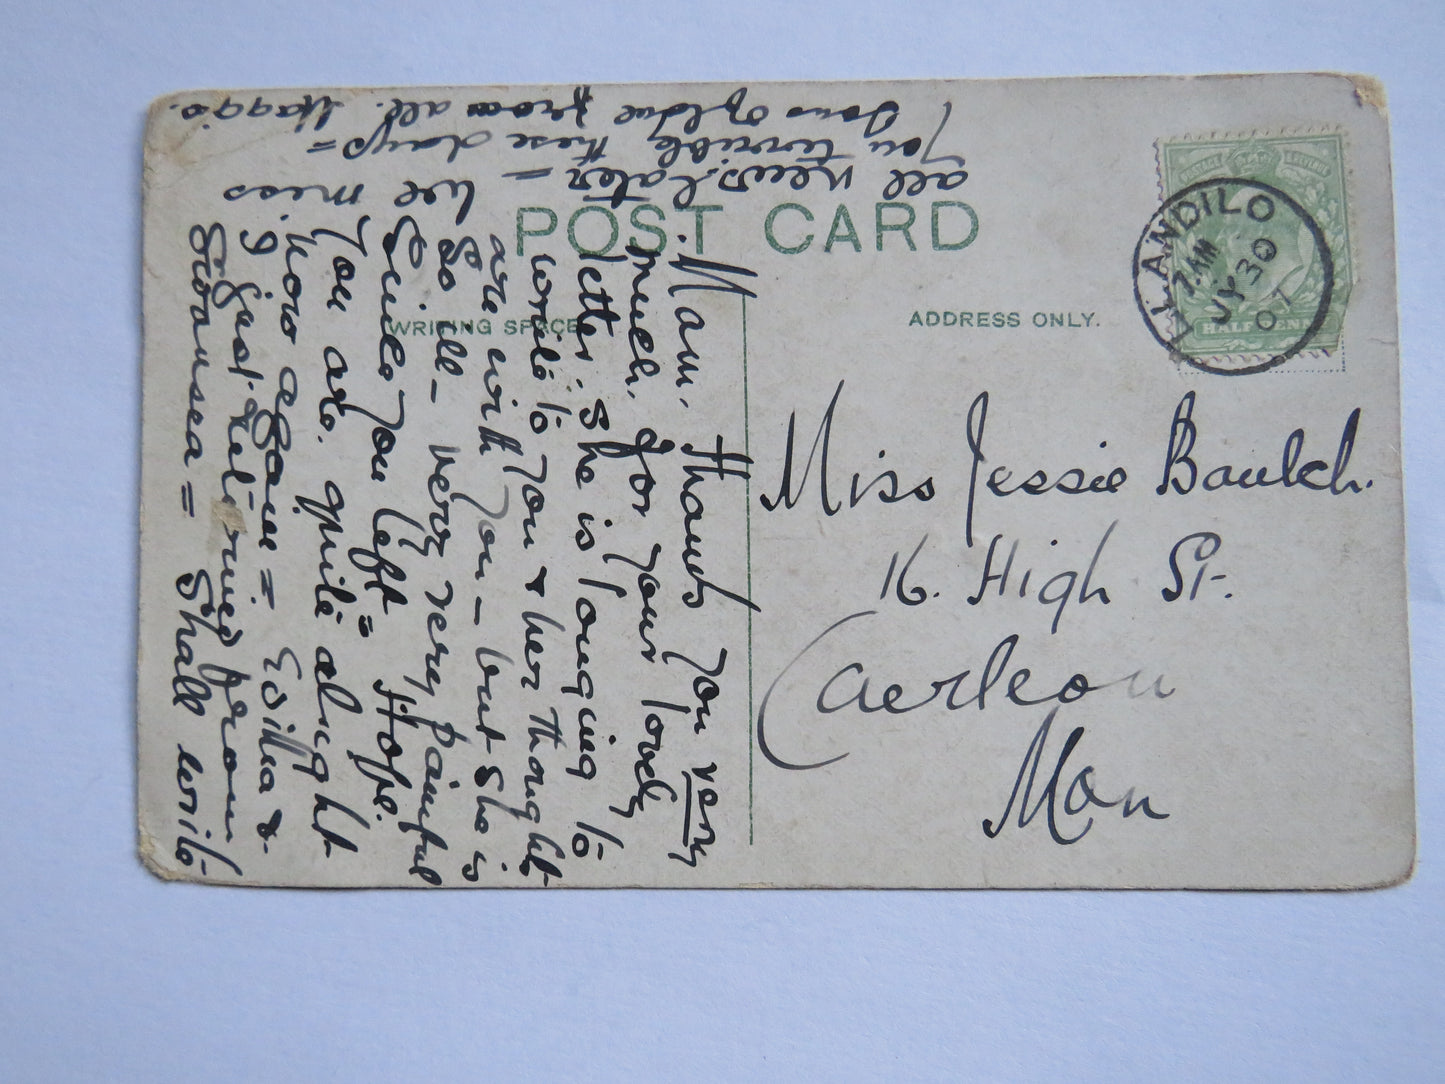 POST CARD
WRITING SPACE
ADDRESS ONLY.
LLANDILO
7 AM
JY 30
07
POSTAGE & REVENUE
HALFPENNY
Miss Jessie Baulch.
16. High St.
Caerleon
Mon
Mam, thanks you very
much, for your lovely
letter. She is longing to
write to you & her thoughts
are with you – but she is
so ill – very very painful
Since you left = Hope.
you are quite alright
now again = &
I just returned from
Swansea = Shall write
all news later = We miss
you terribly these days =
from all.